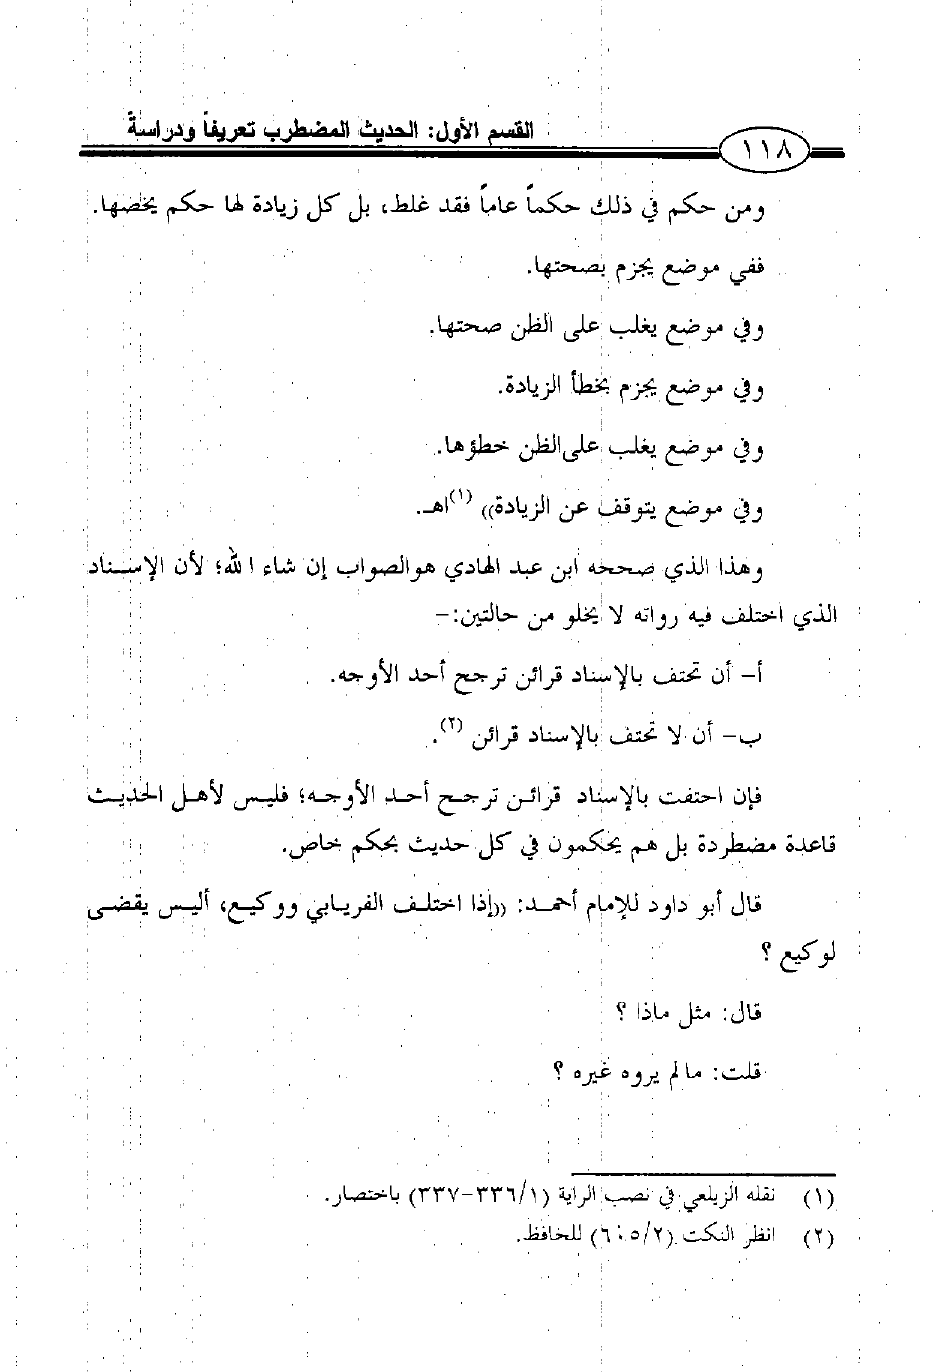 القسم الأول: الحديث المضطرب تعريفاً ودراسةً
١١٨
ومن حكم في ذلك حكماً عاماً فقد غلط، بل كل زيادة لها حكم يخصها.
ففي موضع يجزم بصحتها.
وفي موضع يغلب على الظن صحتها.
وفي موضع يجزم بخطأ الزيادة.
وفي موضع يغلب على الظن خطؤها.
وفي موضع يتوقف عن الزيادة)) (١)اهـ.
وهذا الذي صححه ابن عبد الهادي هو الصواب إن شاء الله؛ لأن الإسناد
الذي اختلف فيه رواته لا يخلو من حالتين:-
أ- أن تحتف بالإسناد قرائن ترجح أحد الأوجه.
ب- أن لا تحتف بالإسناد قرائن (٢).
فإن احتفت بالإسناد قرائن ترجح أحد الأوجه؛ فليس لأهل الحديث
قاعدة مضطردة بل هم يحكمون في كل حديث بحكم خاص.
قال أبو داود للإمام أحمد: ((إذا اختلف الفريابي ووكيع، أليس يقضى
لوكيع ؟
قال: مثل ماذا ؟
قلت: ما لم يروه غيره ؟
(١) نقله الزيلعي في نصب الراية (٣٣٦/١-٣٣٧) باختصار.
(٢) انظر النكت (٦٠٥/٢) للحافظ.